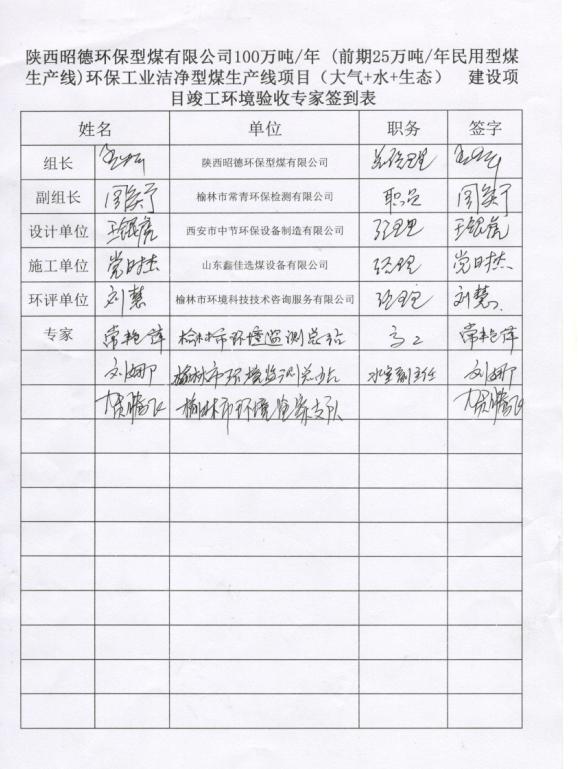 陕西昭德环保型煤有限公司100万吨/年 (前期25万吨/年民用型煤
生产线)环保工业洁净型煤生产线项目（大气+水+生态） 建设项
目竣工环境验收专家签到表
姓名 单位 职务 签字
组长 陕西昭德环保型煤有限公司 总经理
副组长 榆林市常青环保检测有限公司 职员
设计单位 王银虎 西安市中节环保设备制造有限公司 经理 王银虎
施工单位 党时杰 山东鑫佳选煤设备有限公司 经理 党时杰
环评单位 刘慧 榆林市环境科技技术咨询服务有限公司 经理 刘慧
专家 常艳萍 榆林市环境监测总站 高工 常艳萍
刘娜 榆林市环境监测总站 水室副主任 刘娜
贺腾飞 榆林市环境监察支队 贺腾飞